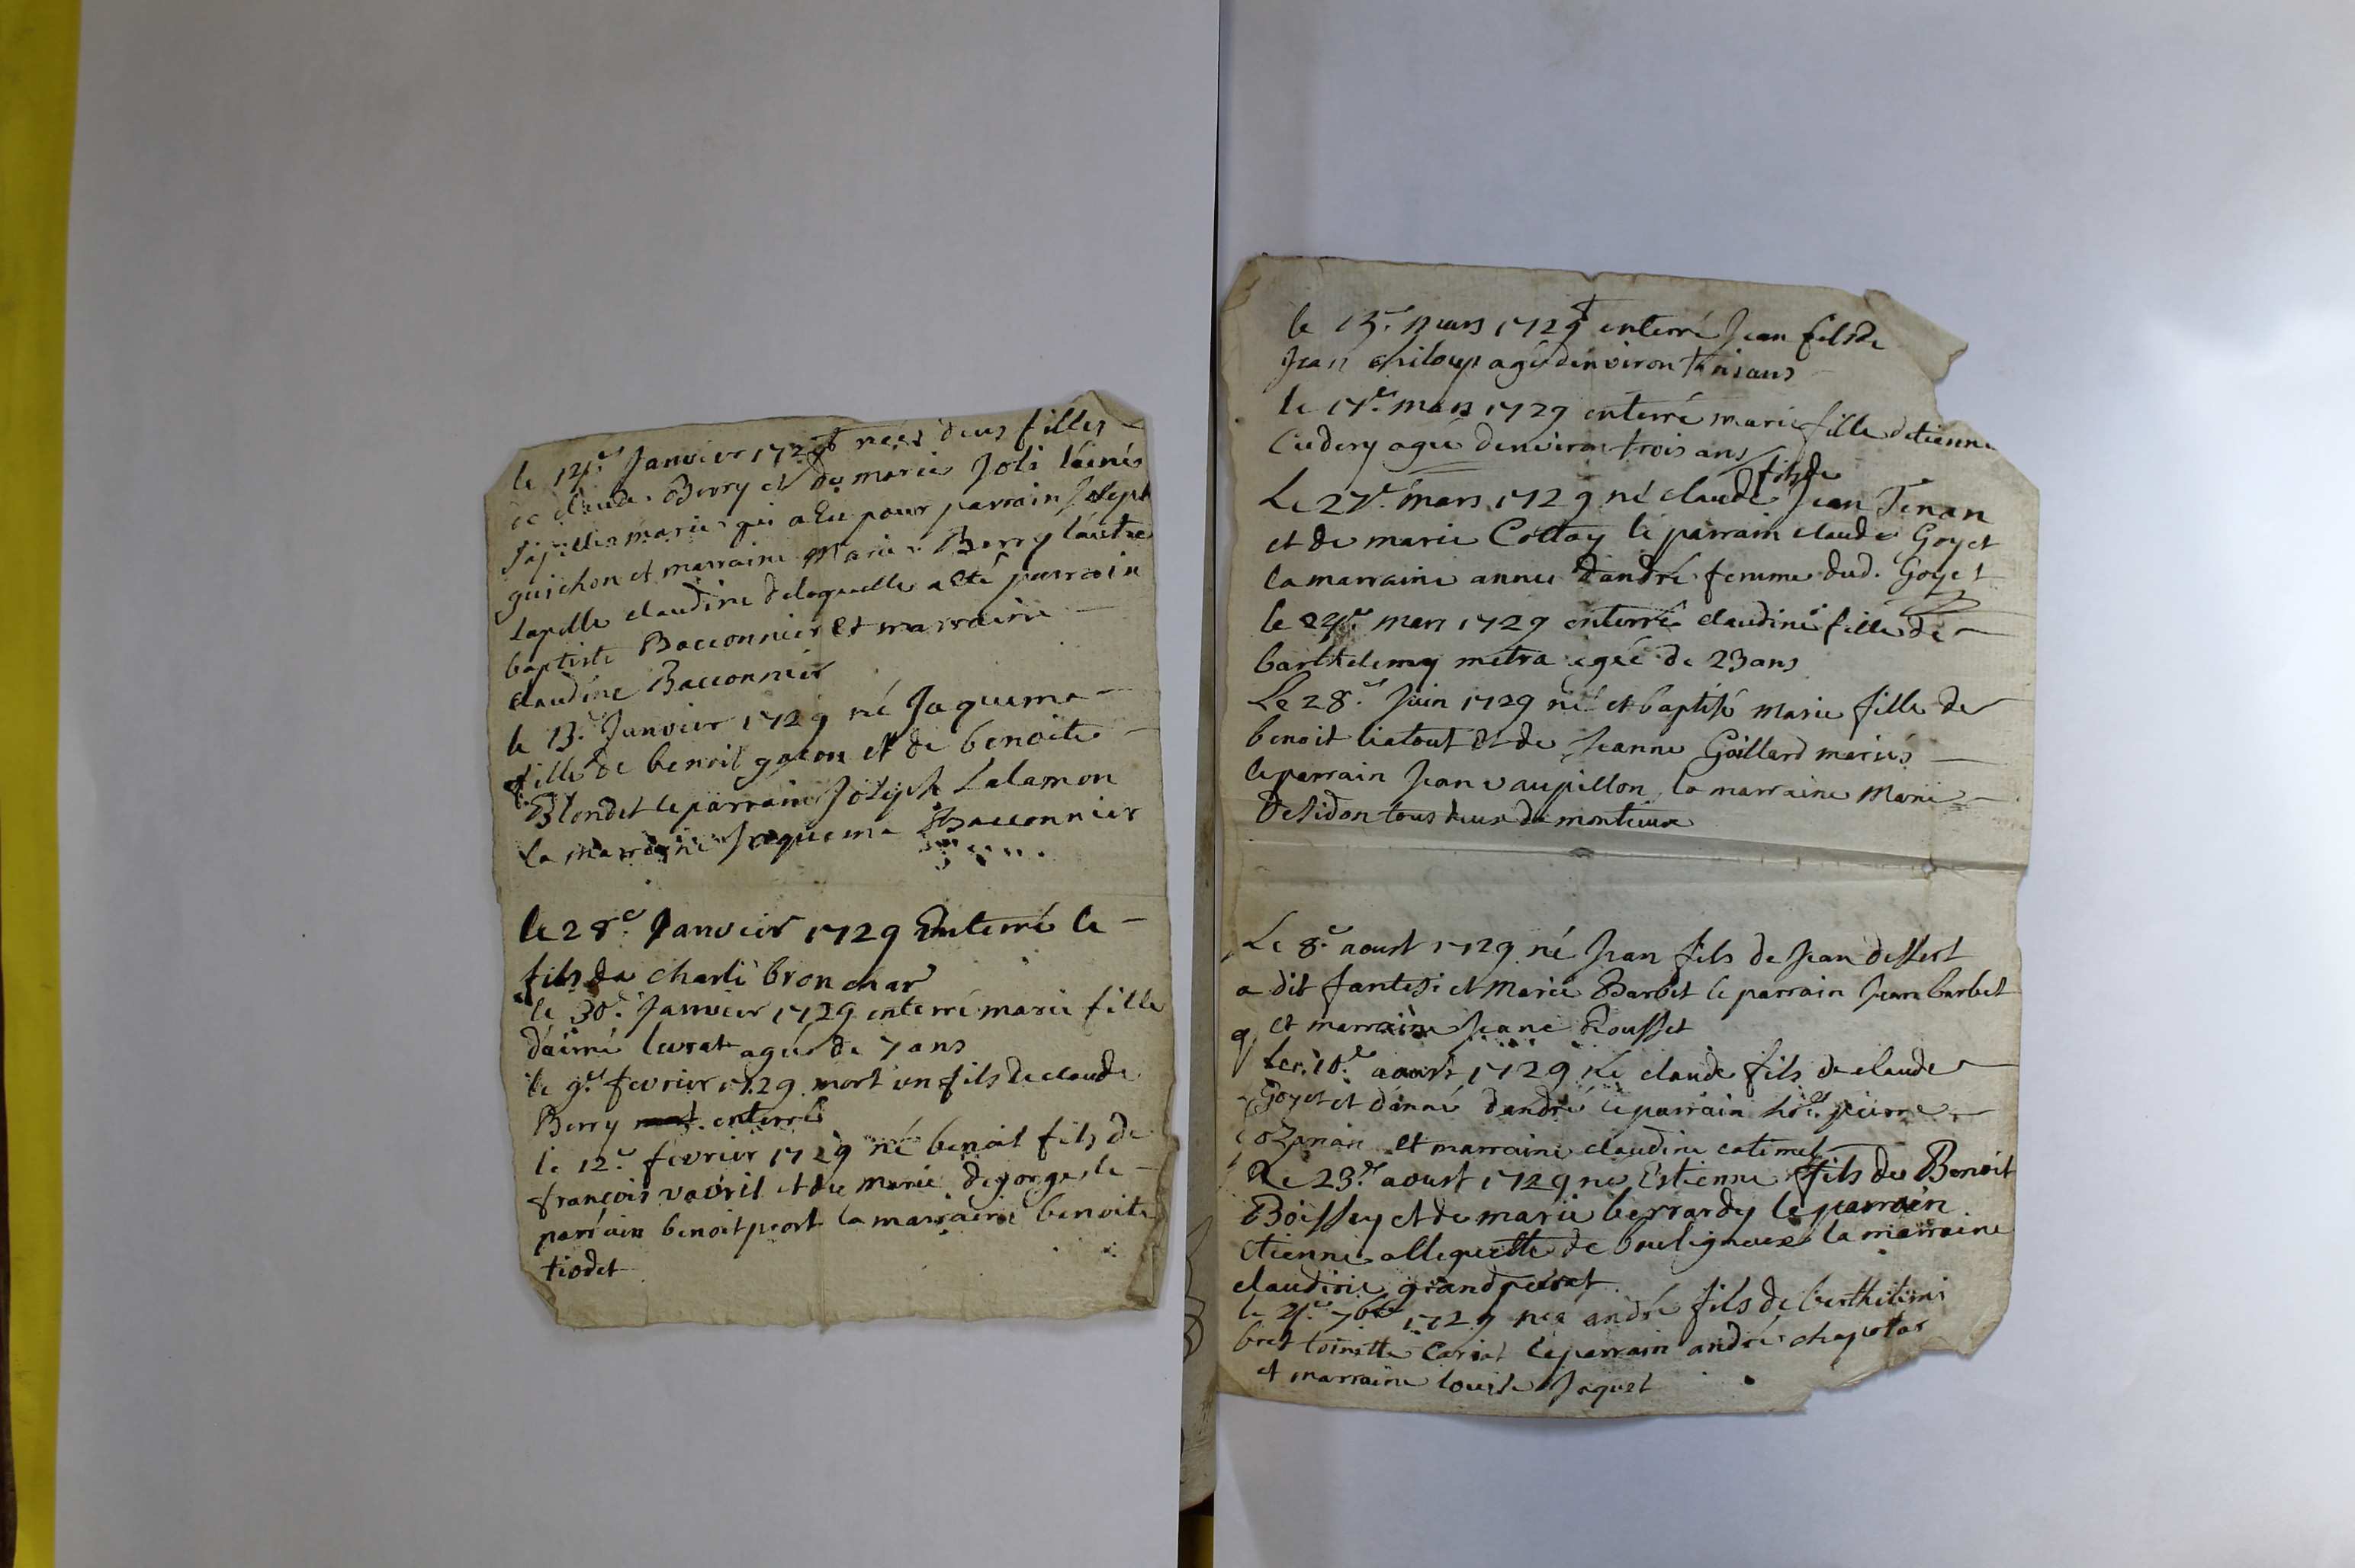 le 12.e Janvier 1729 nées deus filles
de claude Berry et de marie Joli lainée
sapelles marie qui a eu pour parrain Joseph
guichon et marraine Marie Berry lautre
sapelle claudine delaquelle a eté parrain
baptiste Bacconnier et marraine
claudine Bacconnier
le 13.e Janvier 1729 né Jaquema
fille de benoit gacon et de benoite
Blondet le parrain Joseph Lalamon
la marraine Jaquema Bacconnier
le 28.e Janvier 1729 Enterré le
fils de charli bronchar
le 30.e Janvier 1729 enterré marie fille
daimé levrat agée de 7 ans
le 9.e fevrier 1729 mort un fils de claude
Berry enterré
le 12.e fevrier 1729 né benoit fils de
françois vavril et de marie degorges le
parrain benoit peort la marraine benoite
tiodet
le 13.e mars 1729 enterré Jean fils de
Jean agé denviron trois ans
le 17.e mars 1729 enterré marie fille detienne
agée denviron trois ans
Le 27.e mars 1729 né claude fils de Jean Tenan
et de marie Collay le parrain claude Goyet
la marraine annee dandré femme dud. Goyet
le mars 1729 enterré claudine fille de
barthelemy metra agée de 23 ans
Le 28.e Juin 1729 né et baptisé marie fille de
benoit liatout et de Jeanne Gaillard mariés
le parrain Jean vaupillon la marraine Marie
desidon tous deux de montieux
Le 8.e aoust 1729 né Jean fils de Jean dessert
a dit fantesi et Marie Barbet le parrain Jean barbet
et marraine Jeane Rousset
Le 10.e aoust 1729 né claude fils de claude
Goyet et danné dandré le parrain pierre
ozanan et marraine claudine catimel
Le 23.e aoust 1729 né Estienne fils de Benoit
Boissey et de marie berrardy le parrain
etienne allequette de bouligneux la marraine
claudine grandperret
le 7bre 1729 né andré fils de berthelemi
bret toinette Cariat le parrain andré chapotar
et marraine louise Jaquet